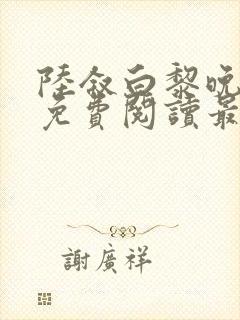 陸敘白黎晚
免費閱讀最
謝廣祥